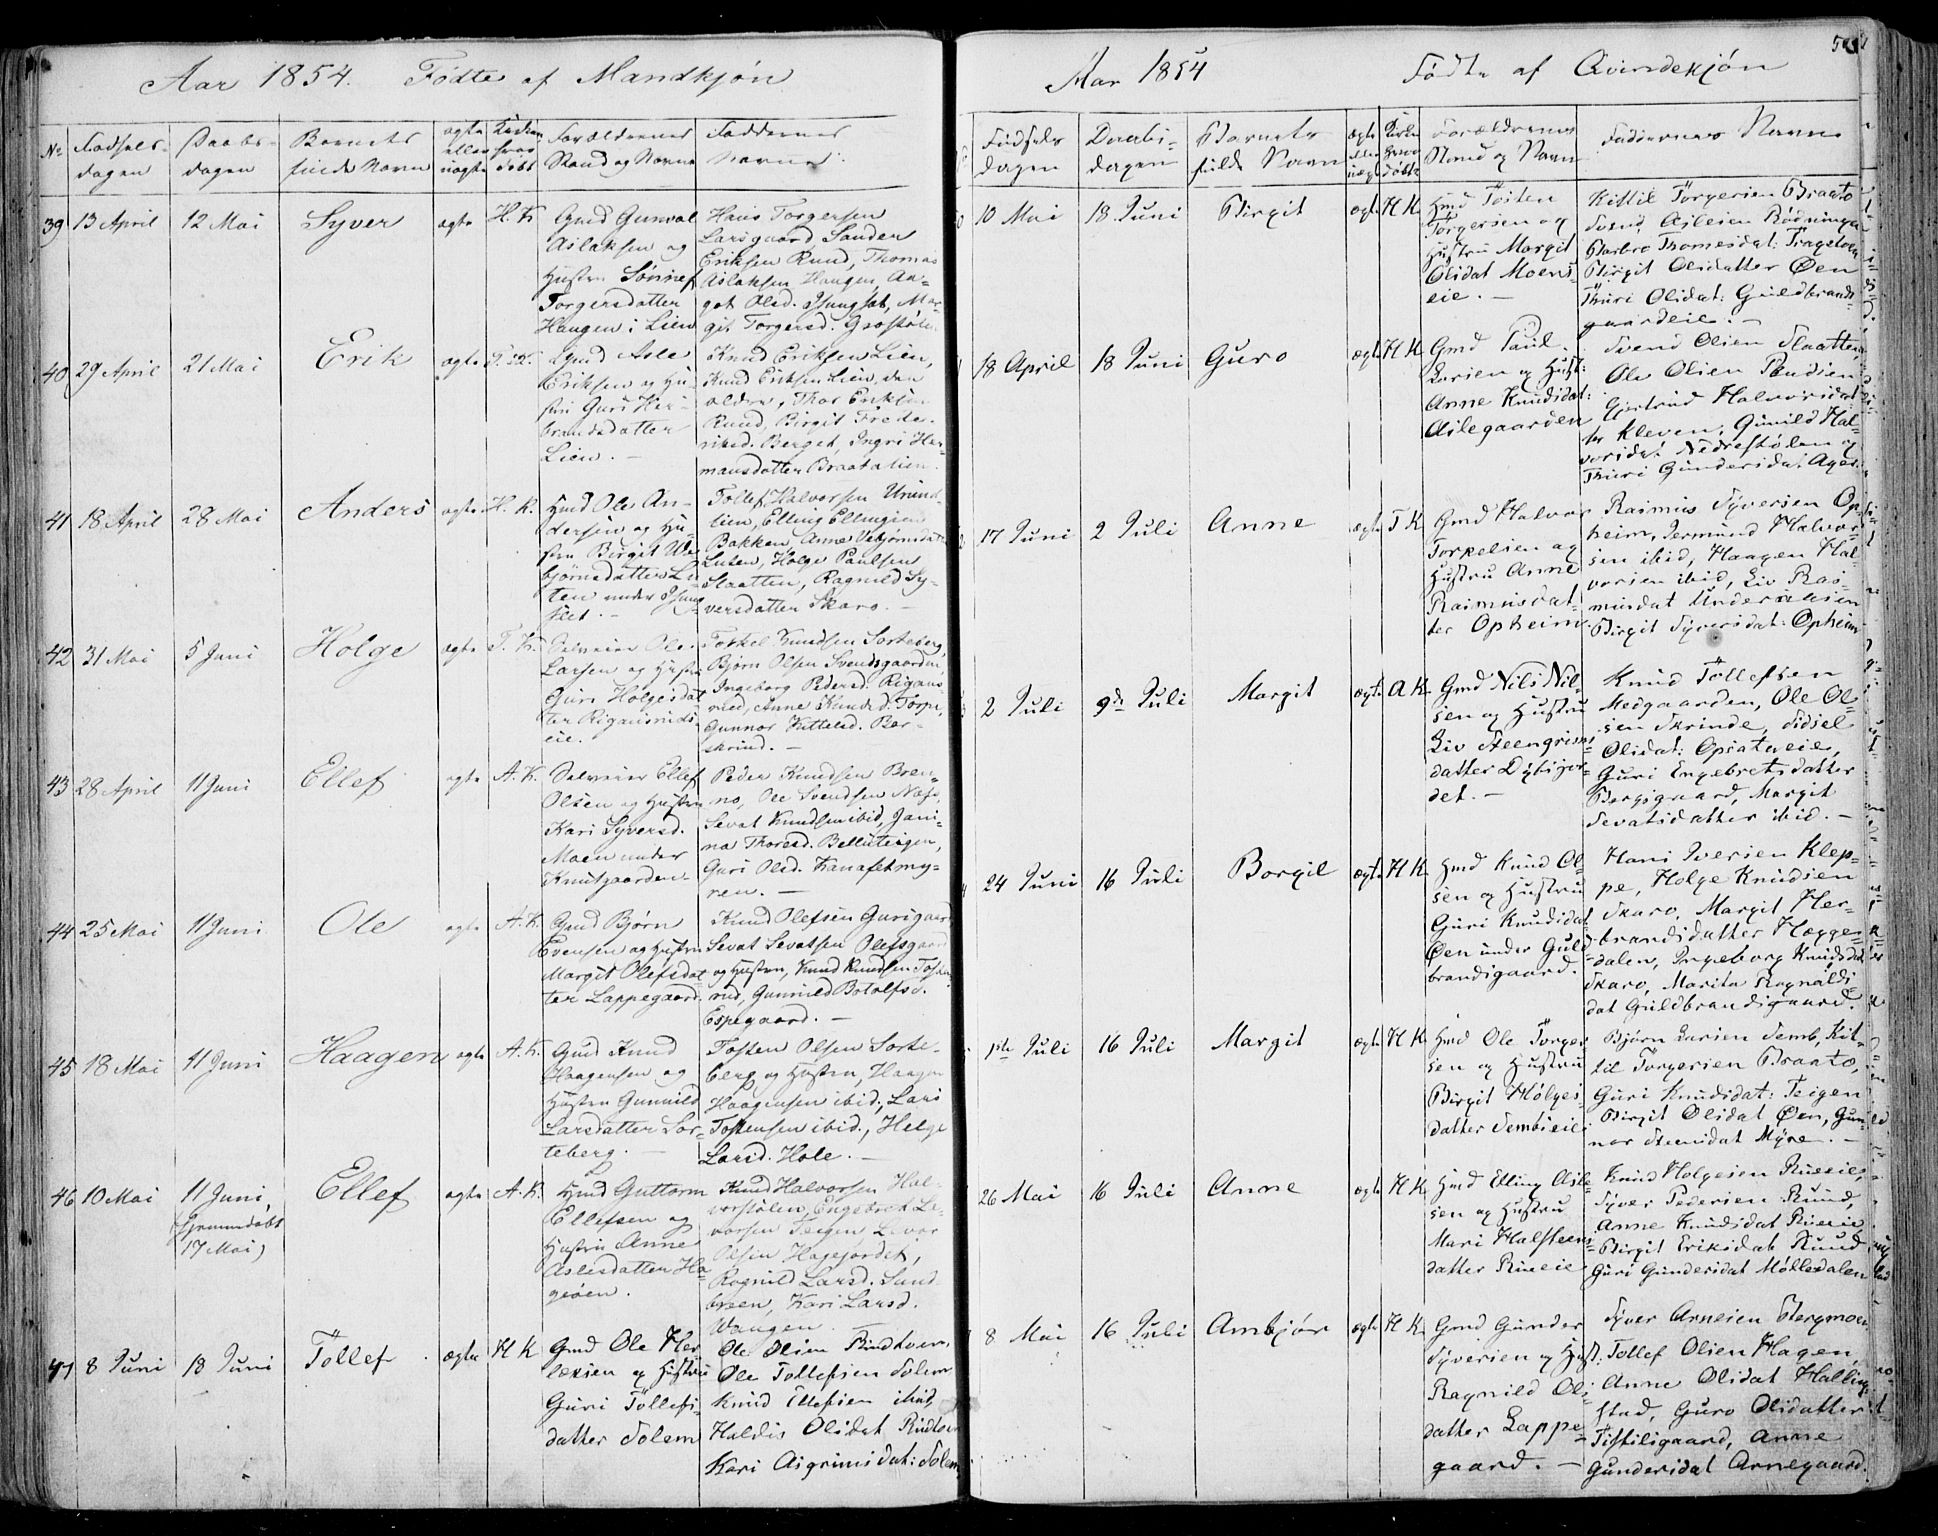 Aar 1854. Fødte af Mandkjøn
No
Fødsels-
dagen
Daabs-
dagen
Barnets
fulde Navn
ægte
eller
uægte
Kirken
hvor
døbt
Forældrenes
Stand og Navn
Faddernes
Navne
39 13 April 12 Mai Syver ægte H. K.
Gmd Gunval
Aslaksen og
Hustru Sønnef
Torgersdatter
Haugen i Lien
Hans Torgersen
Larsgaard, Sander
Eriksen Ruud, Thomas
Aslaksen Haugen, An-
got Olsd. Isungset, Mar-
git Torgersd. Grostølen
40 29 April 21 Mai Erik ægte T. K.
Gmd Asle
Eriksen og Hu-
stru Guri Her-
brandsdatter
Lien. -
Knud Eriksen Lien,
Knud Eriksen Lien, den
ældre, Thor Eriksen
Ruud, Birgit Frede-
riksd. Berget, Ingri Her-
mansdatter Braatalien.
41 18 April 28 Mai Anders ægte H. K.
Hmd Ole An-
dersen og Hu-
stru Birgit Ve-
bjørnsdatter Lu-
ten under Isung-
set. -
Tollef Halvorsen Urund-
lien, Elling Ellingsen
Bakken, Anne Vebjørnsdatter
Luten, Holge Paulsen
Slaatten, Ragnild Sy-
versdatter Skaro. -
42 31 Mai 5 Juni Holge ægte T. K.
Selveier Ole
Larsen og Hustru
Guri Holgesdat-
ter Rigansruds-
eie.
Torkel Knudsen Sorteberg,
Bjørn Olsen Svendsgaarden,
Ingeborg Pedersd. Rigans-
rud, Anne Knudsd. Torpe,
Gunnor Kittelsd. Bor-
skrind. -
43 28 April 11 Juni Ellef ægte A. K.
Selveier Ellef
Olsen og Hustru
Kari Syversd.
Moen under
Knutgaarden
Peder Knudsen Bren-
no, Ole Svendsen Næss,
Sevat Knudsen ibid, Jani-
na Thoresd. Belluteigen,
Guri Olsd. Kanafetmy-
ren. -
44 25 Mai 11 Juni Ole ægte A. K.
Gmd Bjørn
Evensen og Hustru
Margit Olefsdat-
ter Lappegaard.
Knud Olefsen Gurigaard
Sevat Sevatsen Olefsgaard
og Hustru, Knud Knudsen Tofte-
rud, Gunnild Botolfsd.
Espegaard. -
45 18 Mai 11 Juni Haagen ægte A. K.
Gmd Knud
Haagensen og
Hustru Gunnild
Larsdatter Sor-
teberg. -
Tosten Olsen Sorte-
berg og Hustru, Haagen
Haagensen ibid., Lars
Tostensen ibid., Helge
Larsd. Hole. -
46 10 Mai 11 Juni,
(hjemmedøbt
17 Mai)
Ellef ægte A. K.
Hmd Guttorm
Ellefsen og
Hustru Anne
Aslesdatter Ha-
giøen.
Knud Halvorsen Hal-
vorstølen, Engebret Le-
vorsen Teigen, Levor
Olsen Hagejordet,
Ragnild Larsd. Sund-
breen, Kari Larsd.
Wangen.
47 8 Juni 18 Juni Tollef ægte H K
Gmd Ole Her-
leksen og Hustru
Guri Tollefs-
datter Solem
Ole Olsen Rudtoen,
Ole Tollefsen Solem
Knud Tollefsen ibid,
Haldis Olsdat Rudtoen
Kari Asgrimsdat: Solem

Aar 1854 Fødte af Qvindekjøn
Fødsels
dagen
Daabs-
dagen
Barnets
fulde Navn
ægte
eller
uægte
Kirken
hvor
døbte
Forældrenes
Stand og Navn
Faddernes Navn
10 Mai 18 Juni Birgit ægte H K
Hmd Tosten
Torgersen og
Hustru Margit
Olsdat Moens-
eie. -
Kittil Torgersen Braato
Svend Aslesen Rødningen
Barbro Thomesdat:
Birgit Olsdatter Øen
Thuri Olsdat: Guldbrands-
gaardeie. -
18 April 18 Juni Guro ægte H K
Gmd Paul
Larsen og Hust:
Anne Knudsdat:
Aslegaarden
Svend Olsen Slaatten,
Ole Olsen
Gjertrud Halvorsdat-
ter Kleven, Gunild Hal-
vorsdat Nedrestølen og
Thuri Gundersdat Ager.
17 Juni 2 Juli Anne ægte T K
Gmd Halvor
Torkelsen og
Hustru Anne
Rasmusdat-
ter Opheim
Rasmus Syversen Op-
heim, Jermund Halvor-
sen ibid, Haagen Hal-
vorsen ibid, Liv Ras-
musdat Underaasen
Birgit Syversdat: Opheim
2 Juli 9de Juli Margit ægte A K
Gmd Nils Nil-
sen og Hustru
Liv Steengrims-
datter Dybsjor-
det. -
Knud Tollefsen
Medgaarden, Ole Ol-
sen Skrinde, Sidsel
Olsdat: Opsateie,
Guri Engebretsdatter
Bergsgaard, Margit
Sevatsdatter ibid. -
24 Juni 16 Juli Borgil ægte H K
Hmd Knud Ol-
sen og Hustru
Guri Knudsdat
Øen under Guld-
brandsgaard.
Hans Iversen Klep-
pe, Holge Knudsen
Skaro, Margit Her-
brandsdatter Hægge-
dalen, Ingeborg Knudsdat
Skaro, Marita Ragnalds-
dat Guldbrandsgaard.
1ste Juli 16 Juli Margit ægte H K
Hmd Ole Torger-
sen og Hustru
Birgit Holges-
datter Sembseie
Bjørn Larsen Semb, Kit-
til Torgersen Braato,
Guri Knudsdat: Teigen
Birgit Olsdat Øen, Gun-
nor Steensdat Myre. -
26 Mai 16 Juli Anne ægte H K
Hmd Elling Asle-
sen og Hustru
Mari Halsteens-
datter Rueeie
Knud Holgesen Rueeie,
Syver Pedersen Ruud,
Anne Knudsdat Rueeie
Birgit Eriksdat Ruud
Guri Gundersdat Møllesdalen
8 Mai 16 Juli Ambjør ægte H K
Gmd Gunder
Syversen og Hust:
Ragnild Ols-
datter Lappe-
gaard. -
Syver Arnesen Bergmoen
Tollef Olsen Hagen,
Anne Olsdat Halling-
stad, Guro Olsdatter
Tistilsgaard, Anne
Gundersdat Arnegaard.